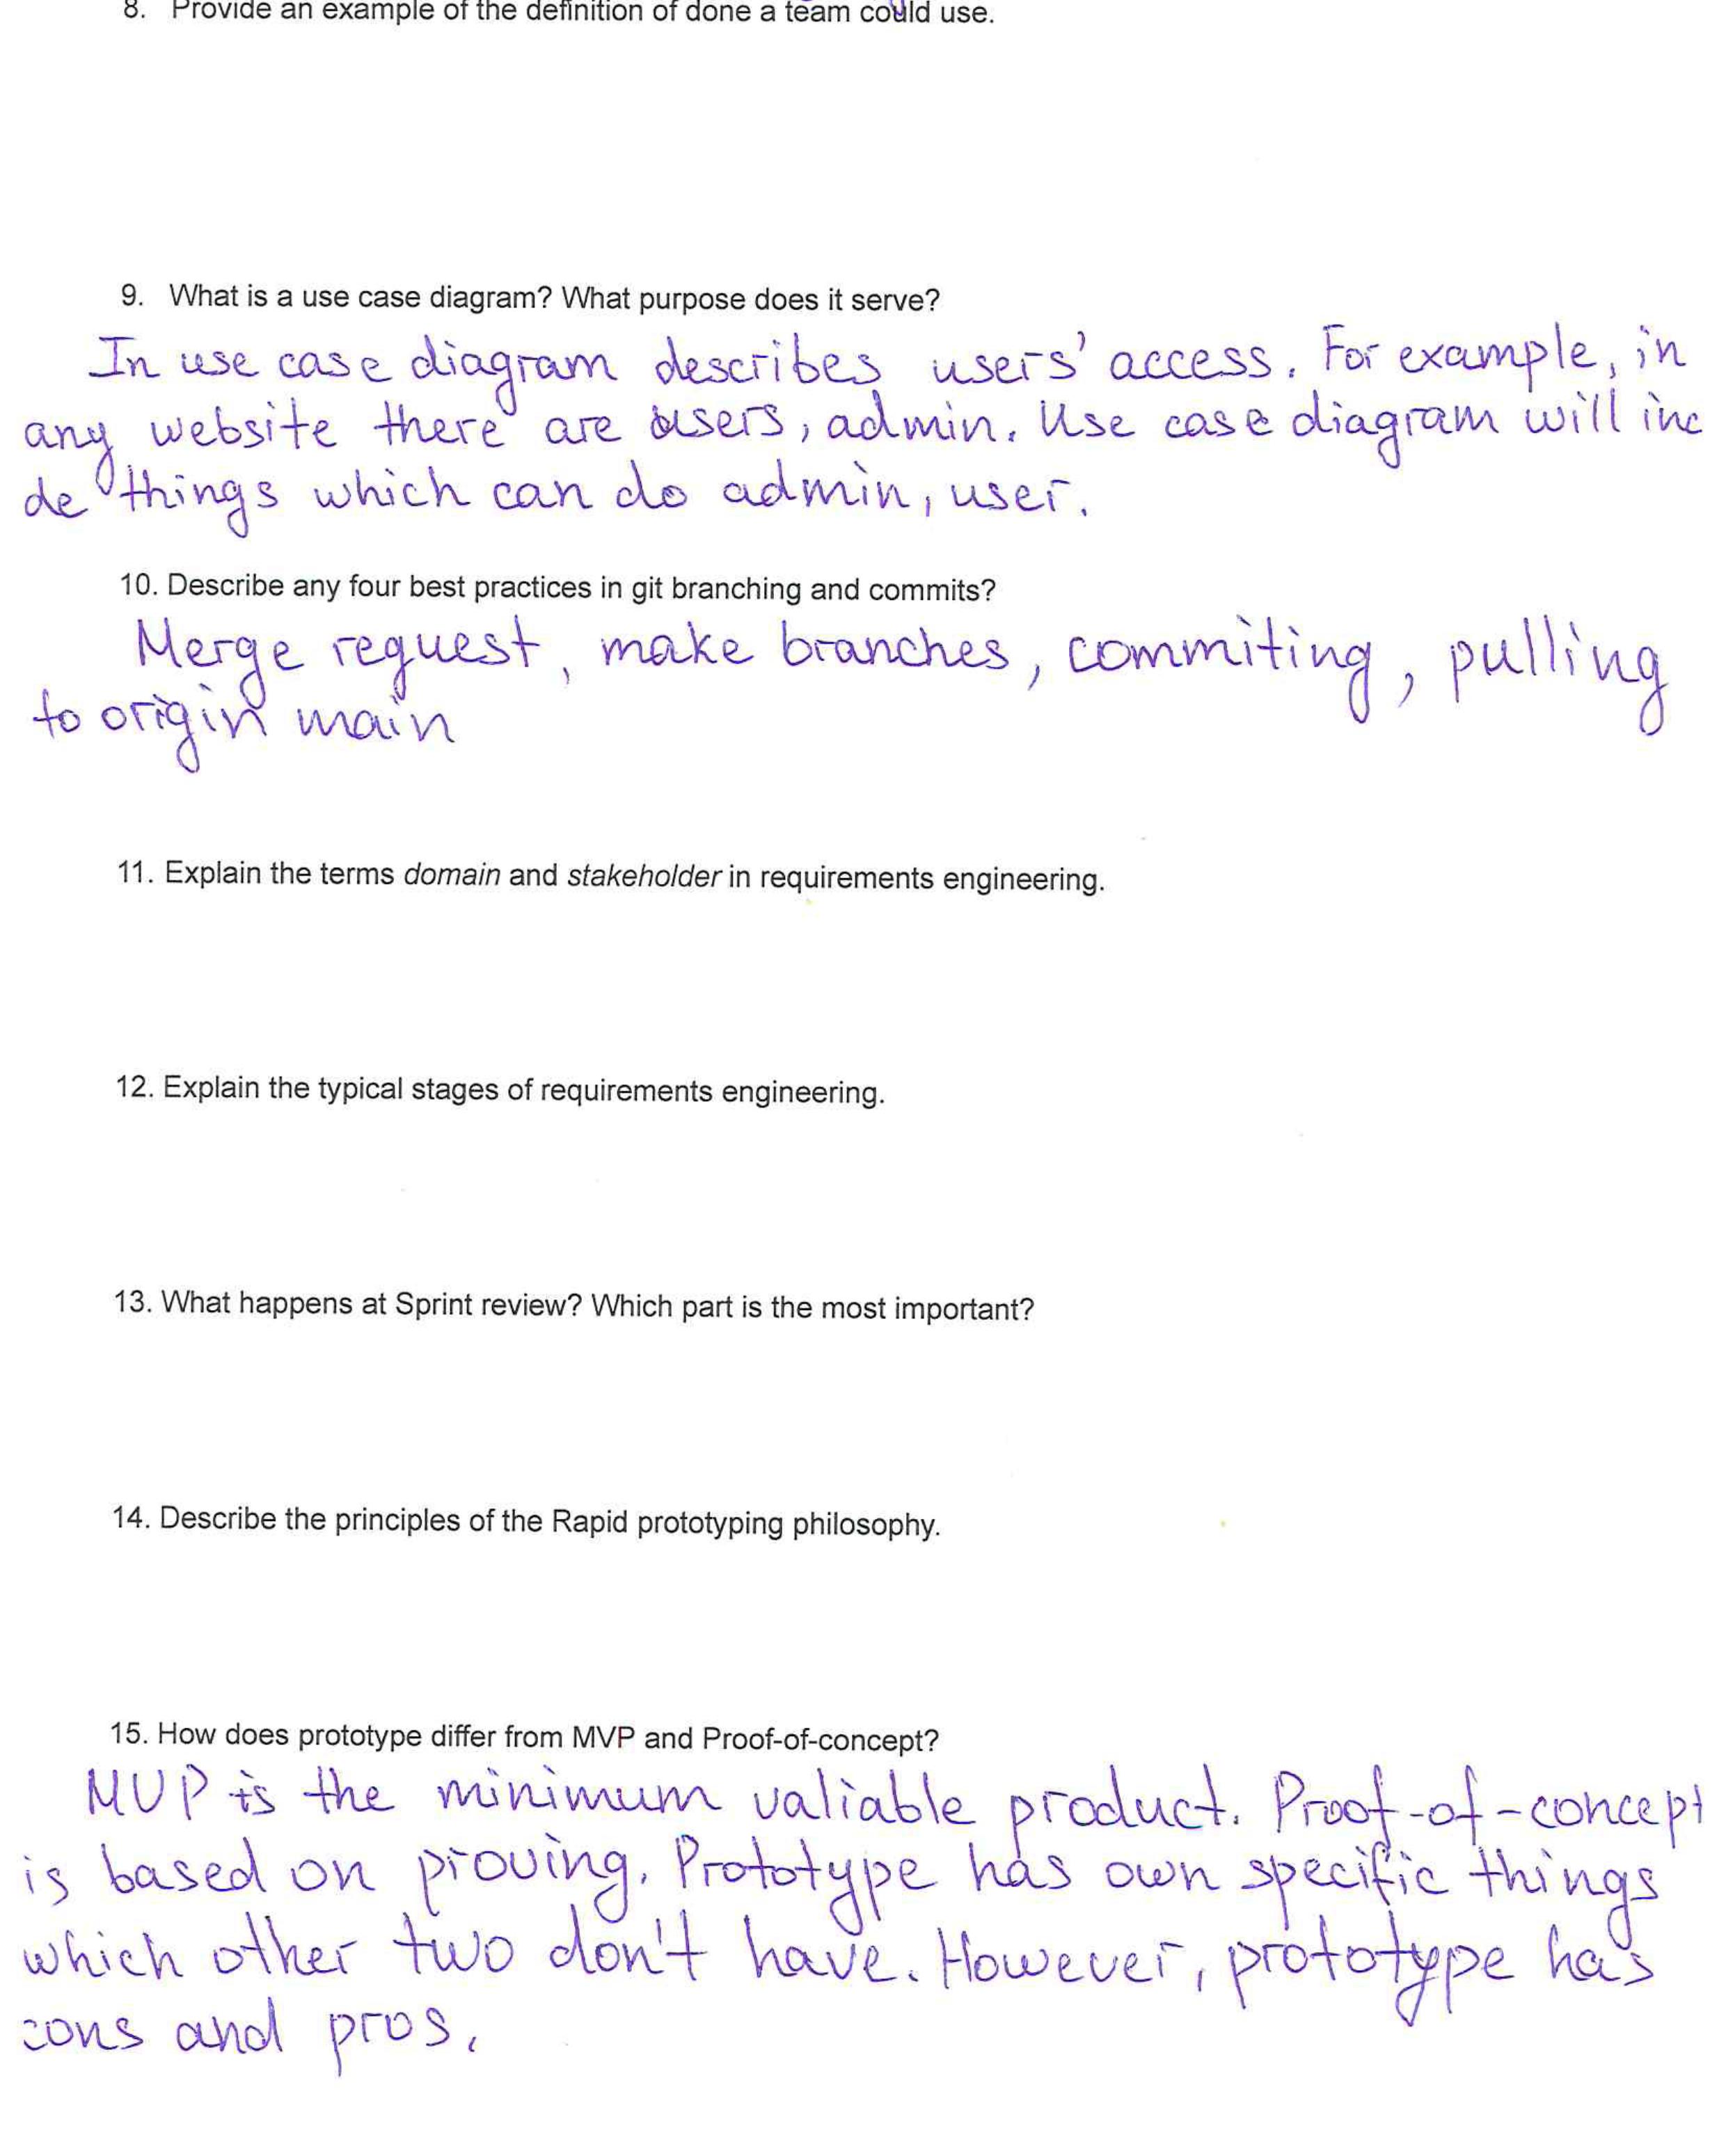 8. Provide an example of the definition of done a team could use.
9. What is a use case diagram? What purpose does it serve?
In use case diagram describes users' access. For example, in
any website there are users, admin. Use case diagram will inc
de things which can do admin, user.
10. Describe any four best practices in git branching and commits?
Merge request, make branches, commiting, pulling
to origin main
11. Explain the terms domain and stakeholder in requirements engineering.
12. Explain the typical stages of requirements engineering.
13. What happens at Sprint review? Which part is the most important?
14. Describe the principles of the Rapid prototyping philosophy.
15. How does prototype differ from MVP and Proof-of-concept?
MVP is the minimum valiable product. Proof-of-concept
is based on proving. Prototype has own specific things
which other two don't have. However, prototype has
cons and pros.